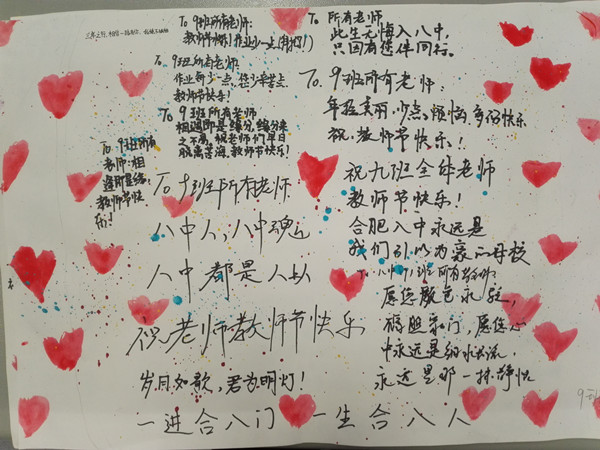 To 9班所有老师:
教师节快乐!作业少一点(拜托!)
To 9班所有老师:
作业每少一点,您少辛苦点.
教师节快乐!
To 9班所有老师
相遇即是缘分,缘分来
之不易,祝老师们早日
脱离苦海,教师节快乐!
To: 9班所有
老师:相
遇即是缘,
教师节快
乐!
To 9班所有老师:
八中人,八中魂
八中都是人上人
祝老师教师节快乐
岁月如歌,君为明灯!
一进合八门 一生合八人
To 所有老师
此生无悔入八中,
只因有您伴同行.
To: 9班所有老师:
年轻美丽,少点烦恼,多份快乐
祝:教师节快乐!
祝九班全体老师
教师节快乐!
合肥八中永远是
我们引以为豪的母校
To 八中9班所有老师:
愿您歌色永驻,
福照家门,愿您心
中永远是细水长流
永远是那一抹静悦